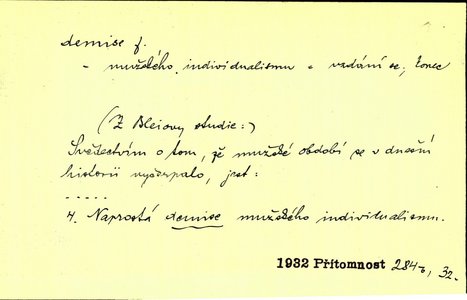 demise f.
- mužského individualismu = vzdání se, konec
(Z Bleiovy studie:)
Svědectvím o tom, že mužské období se v dnešní
historii vyčerpalo, jest:
.....
4. Naprostá demise mužského individualismu.
1932 Přítomnost 284b, 32.